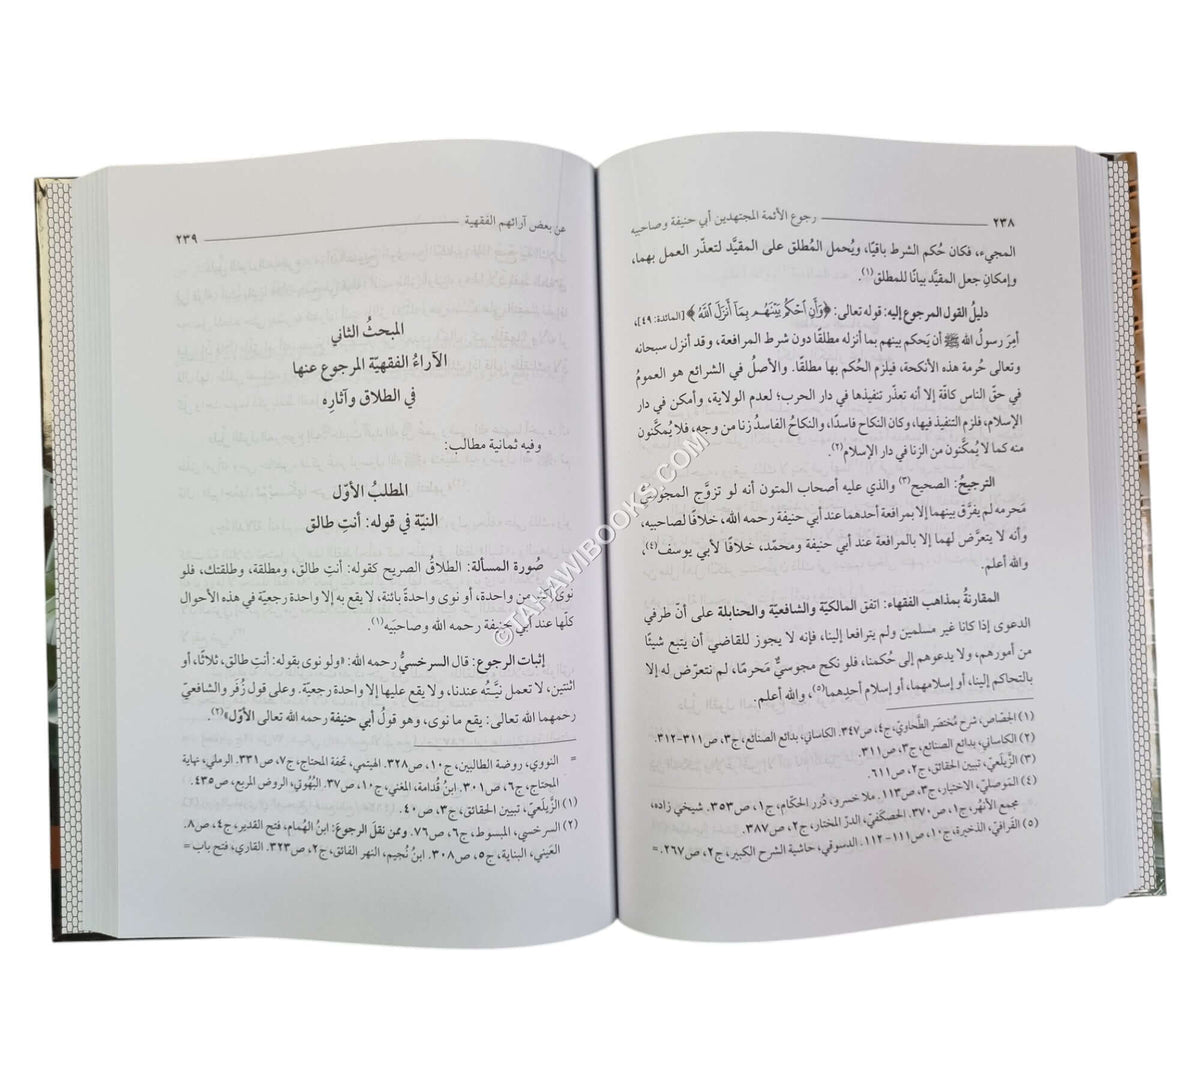 ٢٣٨ رجوع الأئمة المجتهدين أبي حنيفة وصاحبيه
المجيء، فكان حُكم الشرط باقيًا، ويُحمل المُطلق على المقيَّد لتعذّر العمل بهما،
وإمكانِ جعل المقيَّد بيانًا للمطلق(١).
دليلُ القول المرجوع إليه: قوله تعالى: ﴿وَأَنِ ٱحْكُم بَيْنَهُم بِمَآ أَنزَلَ ٱللَّهُ﴾ [المائدة: ٤٩]،
أمِرَ رسولُ الله ﷺ أن يَحكم بينهم بما أنزله مطلقًا دون شرط المرافعة، وقد أنزل سبحانه
وتعالى حُرمة هذه الأنكحة، فيلزم الحُكم بها مطلقًا. والأصل في الشرائع هو العمومُ
في حقّ الناس كافة إلا أنه تعذّر تنفيذها في دار الحرب؛ لعدم الولاية، وأمكن في دار
الإسلام، فلزم التنفيذ فيها، وكان النكاح فاسدًا، والنكاحُ الفاسدُ زنا من وجه، فلا يُمكَّنون
منه كما لا يُمكَّنون من الزنا في دار الإسلام(٢).
الترجيحُ: الصحيح(٣) والذي عليه أصحاب المتون أنه لو تزوَّج المجوسي
مَحرمه لم يفرَّق بينهما إلا بمرافعة أحدهما عند أبي حنيفة رحمه الله، خلافًا لصاحبيه،
وأنه لا يتعرَّض لهما إلا بالمرافعة عند أبي حنيفة ومحمّد، خلافًا لأبي يوسف(٤)،
والله أعلم.
المقارنةُ بمذاهب الفقهاء: اتفق المالكيّة والشافعيّة والحنابلة على أنّ طرفي
الدعوى إذا كانا غير مسلمين ولم يترافعا إلينا، فإنه لا يجوز للقاضي أن يتبع شيئًا
من أمورهم، ولا يدعوهم إلى حُكمنا، فلو نكح مجوسيٌّ مَحرمًا، لم نتعرّض له إلا
بالتحاكم إلينا، أو إسلامهما، أو إسلام أحدِهما(٥)، والله أعلم.
(١) الجَصّاص، شرح مُختصر الطَّحاويّ، ج٤، ص٣٤٧. الكاساني، بدائع الصنائع، ج٣، ص٣١١-٣١٢.
(٢) الكاساني، بدائع الصنائع، ج٣، ص٣١١.
(٣) الزَّيلَعيّ، تبيين الحقائق، ج٢، ص٦١١.
(٤) المَوصليّ، الاختيار، ج٣، ص١١٣. ملا خسرو، دُرر الحكّام، ج١، ص٣٥٣. شيخي زاده،
مجمع الأنهُر، ج١، ص٣٧٠. الحَصكَفيّ، الدرّ المختار، ج٢، ص٣٨٧.
(٥) القَرافيّ، الذخيرة، ج١٠، ص١١١-١١٢. الدسوقي، حاشية الشرح الكبير، ج٢، ص٢٦٧. =
عن بعض آرائهم الفقهية ٢٣٩
المبحثُ الثاني
الآراءُ الفقهيّة المرجوع عنها
في الطلاق وآثارِه
وفيه ثمانية مطالب:
المطلبُ الأوّل
النيّة في قوله: أنتِ طالق
صُورة المسألة: الطلاقُ الصريح كقوله: أنتِ طالق، ومطلقة، وطلقتك، فلو
نوى أكثر من واحدة، أو نوى واحدةً بائنة، لا يقع به إلا واحدة رجعية في هذه الأحوال
كلّها عند أبي حنيفة رحمه الله وصاحبَيه(١).
إثبات الرجوع: قال السرخسيُّ رحمه الله: «ولو نوى بقوله: أنتِ طالق، ثلاثًا، أو
اثنتين، لا تعمل نيَّتُه عندنا، ولا يقع عليها إلا واحدة رجعيّة. وعلى قول زُفَر والشافعيّ
رحمهما الله تعالى: يقع ما نوى، وهو قولُ أبي حنيفة رحمه الله تعالى الأوّل»(٢).
= النووي، روضة الطالبين، ج١٠، ص٣٢٨. الهيتمي، تحفة المحتاج، ج٧، ص٣٣١. الرملي، نهاية
المحتاج، ج٦، ص٣٠١. ابنُ قُدامة، المغني، ج١٠، ص٣٧. البُهُوتي، الروض المربع، ص٤٣٥.
(١) الزَّيلَعيّ، تبيين الحقائق، ج٣، ص٤٠.
(٢) السرخسي، المبسوط، ج٦، ص٧٦. وممن نقلَ الرجوعَ: ابنُ الهُمام، فتح القدير، ج٤، ص٨.
العَيني، البناية، ج٥، ص٣٠٨. ابنُ نُجيم، النهر الفائق، ج٢، ص٣٢٣. القاري، فتح باب =
©TAHAWIBOOKS.COM